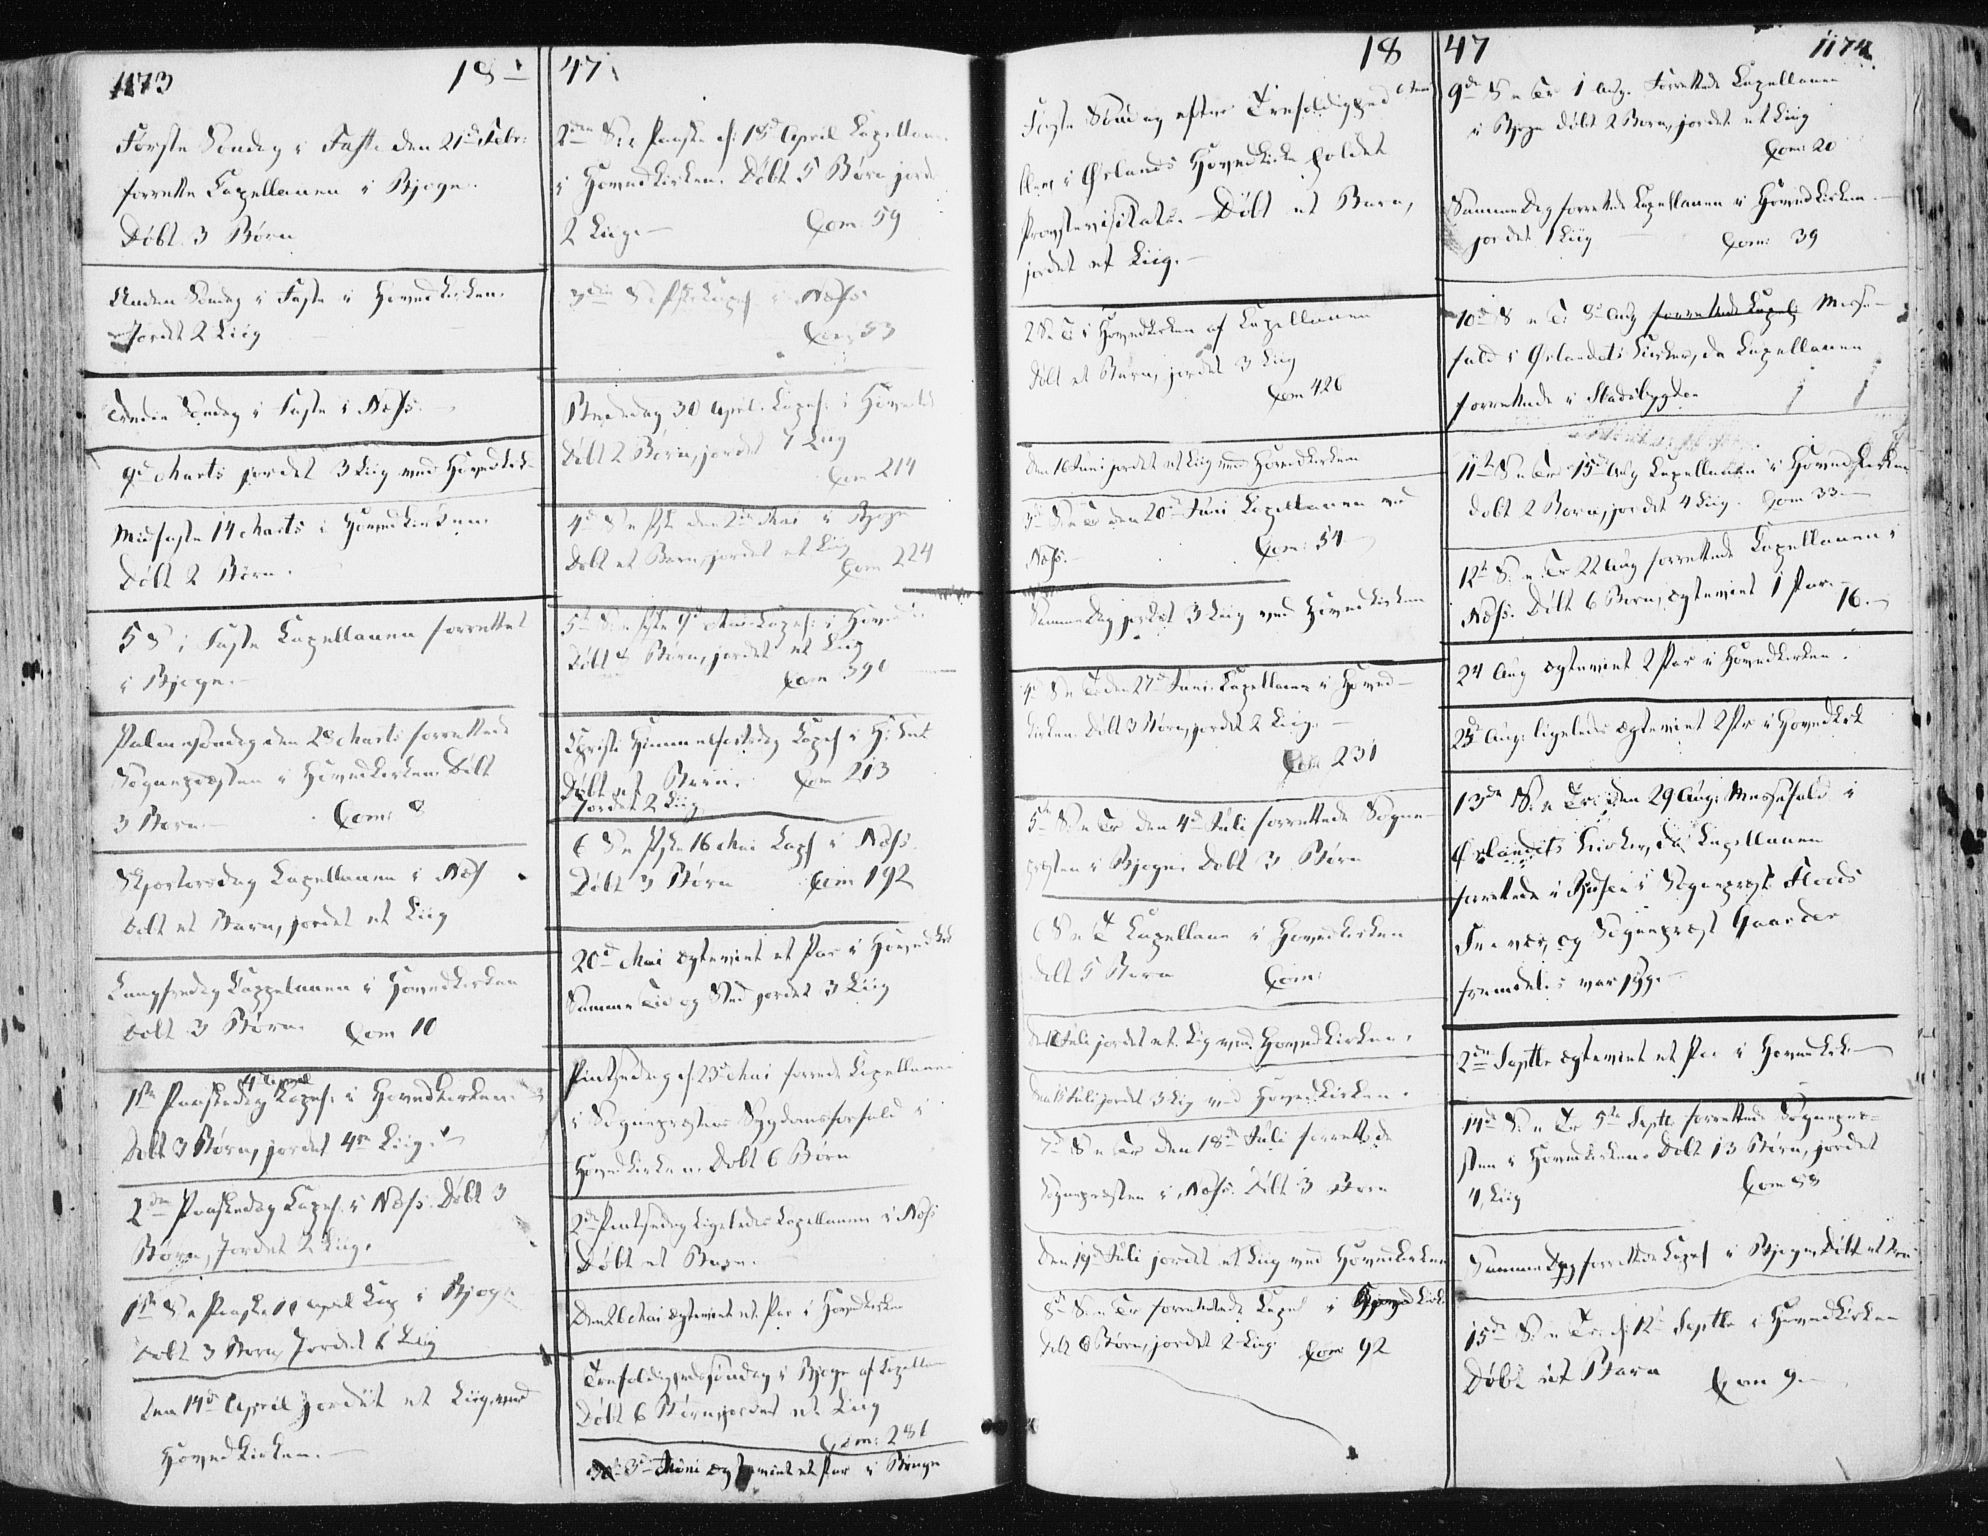 1173
18
47
Første Søndag i Faste den 21de Febr:
forrettede Capellanen i Bjugn.
Døbt 3 Børn
Anden Søndag i Faste i Hovedkirken.
Jordet 2 Liig
Tredie Søndag i Faste i Næss.
9de Marts jordet 3 Liig ved Hovedkirk
Midfaste 14 Marts i Hovedkirken.
Døbt 2 Børn.
5 S. i Faste Capellanen forrettet
i Bjugn.
Palmesøndag den 28 Marts forrettede
Sognepræsten i Hovedkirken. Døbt
3 Børn. Com: 8
Skjærtorsdag Capellanen i Næss
Døbt et Barn, jordet et Liig
Langfredag Cappelanen i Hovedkirken
Døbt 3 Børn. Com 10
4 April
1ste Paaskedag Capel. i Hovedkirken.
Døbt 3 Børn, jordet 4re Liig.
2den Paaskedag Capel. i Næss. Døbt 3
Børn, Jordet 2 Liig.
1ste S. e Paaske 11 April Cap i Bjugn
Døbt 3 Børn, Jordet 6 Liig
Den 14de April jordet et Liig ved
Hovedkirken.
2den S. e Paaske d. 18de April Capellan
i Hovedkirken. Døbt 5 Børn jord
2 Liig. Com 59
3die S e Pske Capel. i Næss.
Com 53
Bededag 30 April. Capel. i Hovedk
Døbt 2 Børn, jordet 7 Liig
Com 214
4de S e Pske den 2den Mai i Bjugn
Døbt et Barn, jordet et Liig
Com 224
5te S. e Pske 9de Mai Capel. i Hoved
Døbt 4 Børn, jordet et Liig
Com 390
Christi Himmelfartsdag Capel i H.
Døbt et Barn. Com 213
Jordet 2 Liig
6 S e Pske 16 Mai Capl i Næss.
Døbt 3 Børn Com 192
20de Mai ægteviet et Par i Hovedkirk
Samme Tid og Sted jordet 3 Liig
Pintsedag d. 23de Mai forrettede Capellanen
i Sognepræstens Sygdomsforfald i
Hovedkirken. Døbt 6 Børn
2den Pintsedag Ligeledes Capellanen i Næss
Døbt et Barn.
Den 26 Mai ægteviet et Par i Hovedkirken
Trefoldighedssøndag i Bjugn af Capellan
Døbt 6 Børn, jordet et Liig
Com: 281
3de Juni ægteviet et Par i Bjugn
18
47
1174
Første Søndag efter Trefoldighed 6 Juni
blev i Ørlands Hovedkirke holdet
Provstevisitats. Døbt et Barn,
jordet et Liig.
2 S. e T. i Hovedkirken af Capellanen
Døbt et Barn, jordet 3 Liig
Com 426
Den 16 Juni jordet et Liig ved Hovedkirken
3de S. e Tr den 20de Juni Capellanen ved
Næss. Com: 54
Samme Dag jordet 3 Liig ved Hovedkirken
4de S e T. den 27de Juni Capellanen i Hoved-
kirken. Døbt 3 Børn, jordet 2 Liig.
Com 231
5te S. e Tr den 4de Juli forrettede Sogne-
præsten i Bjugn. Døbt 3 Børn
6 S e T Capellanen i Hovedkirken
Døbt 5 Børn Com:
Den Juli jordet et Liig ved Hovedkirken.
Den 15 Juli jordet 3 Liig ved Hovedkirken.
7de S e Tr den 18de Juli forrettede
Sognepræsten i Næss. Døbt 3 Børn
Den 19de Juli jordet et Liig ved Hovedkirken
8de S. e Tr forrettede Capel i Hovedkirk
Døbt 8 Børn, jordet 2 Liig Com 92
9de S e Tr 1 Aug. Forrettede Capellanen
i Bjugn døbt 2 Børn, jordet et Liig
Com: 20
Samme Dag forrettede Capellanen i Hovedkirken
jordet 1 Liig Com: 39
10de S e T. 8de Aug forrettede Capel. Messe-
fald i Ørlandets Kirker, da Capellanen
forrettede i Stadsbygden
11te S. e Tr 15de Aug Capellanen i Hovedkirken
Døbt 2 Børn, jordet 4 Liig. Com 33
12te S. e. Tr 22 Aug forrettede Capellanen i
Næss. Døbt 6 Børn, ægteviet 1 Par.
16.
24 Aug ægteviet 2 Par i Hovedkirken.
25de Aug: ligeledes ægteviet 2 Par i Hovedkirk
13de S. e Tr. den 29 Aug: Messefald i
Ørlandets Kirker, da Capellanen
forrettede i i Sognepræst
og Sognepræst Gaarder
fremdeles var syg.
2den Septbr ægteviet et Par i Hovedkirk
14de S. e Tr 5te Septbr forrettede Sognepræ-
sten i Hovedkirken. Døbt 13 Børn, jordet
4 Liig Com 53
Samme Dag forrettede Capel i Bjugn, Døbt et Barn
15de S. e Tr. d: 12 Septbr i Hovedkirken
Døbt et Barn Com 9.